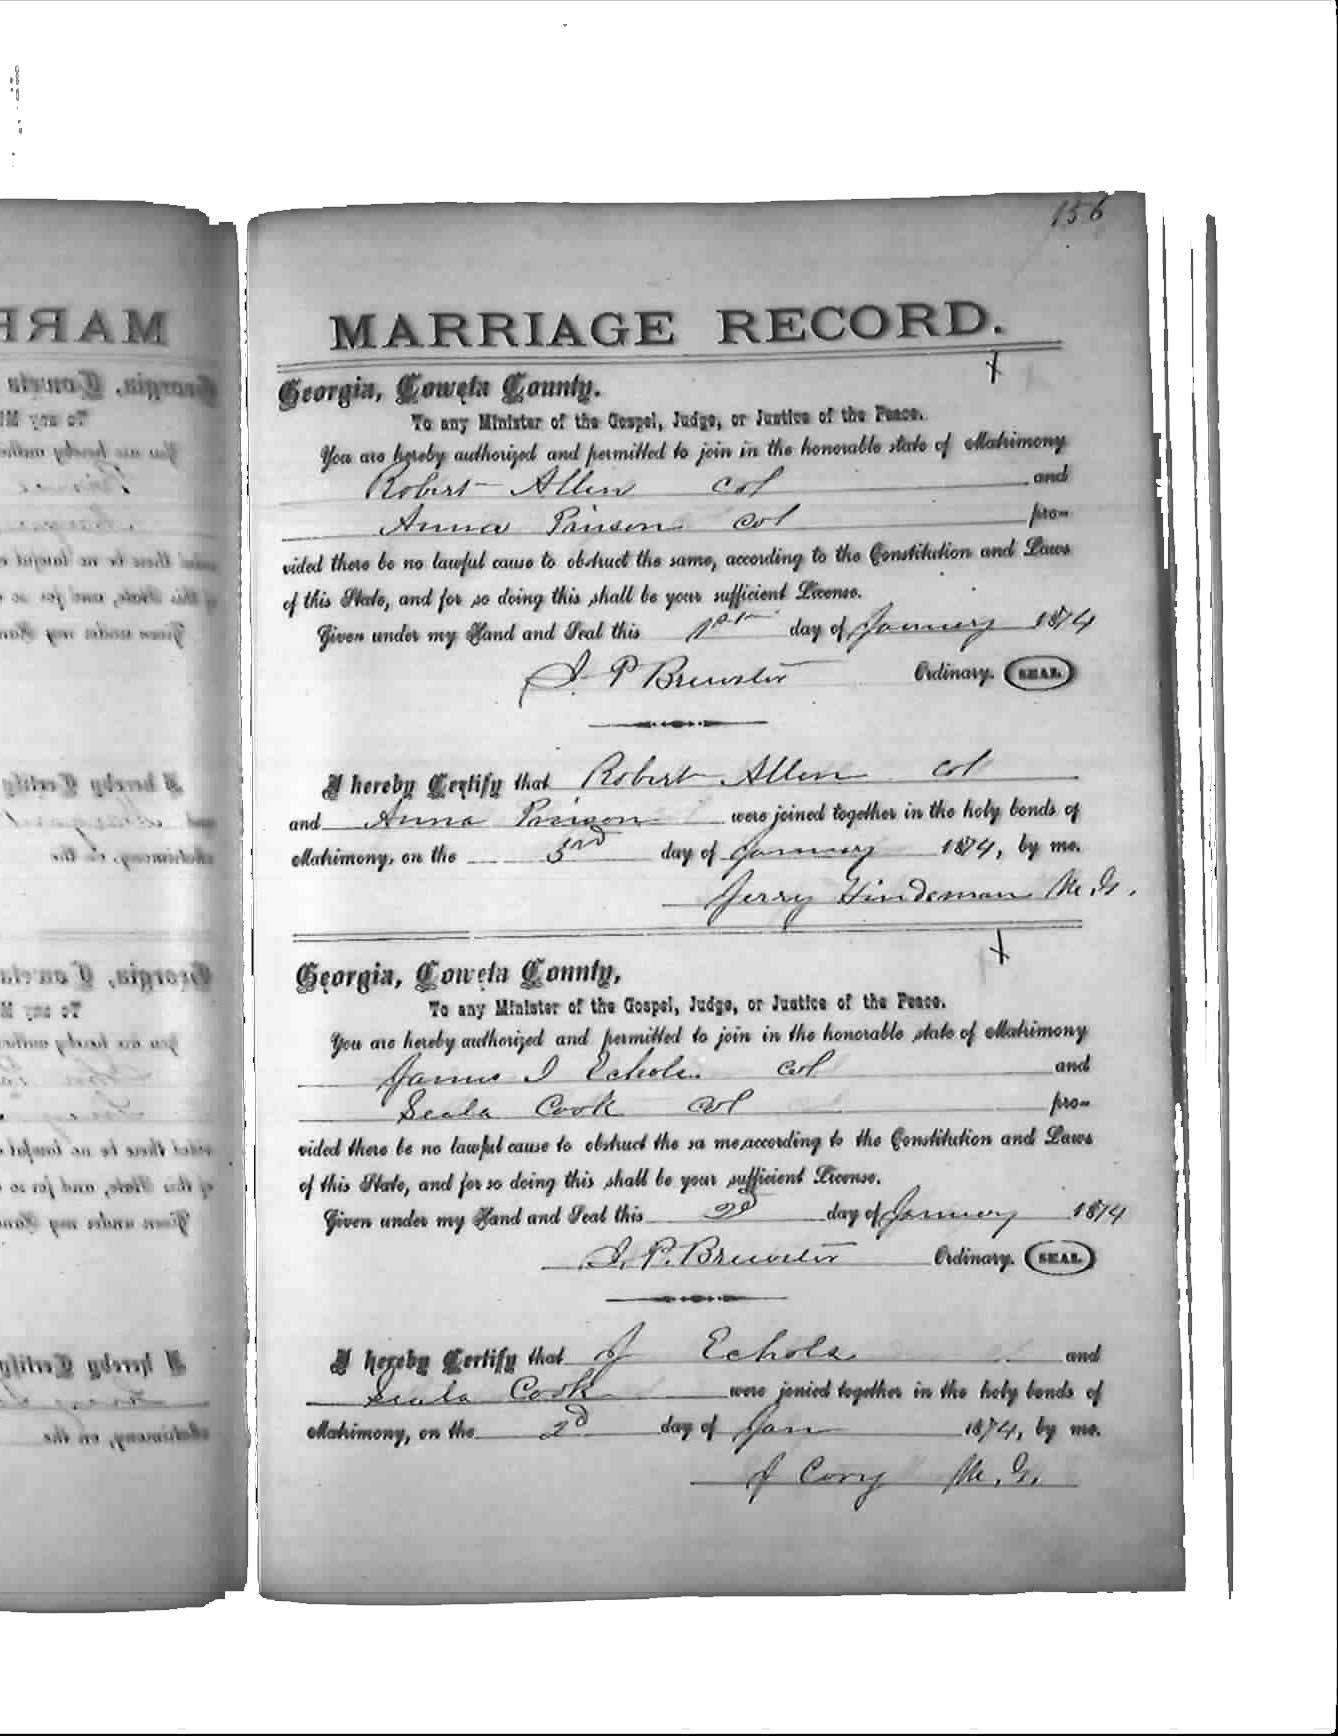 156
MARRIAGE RECORD.
Georgia, Coweta County.
To any Minister of the Gospel, Judge, or Justice of the Peace.
You are hereby authorized and permitted to join in the honorable state of Matrimony
Robert Allen col and
Anna col pro-
vided there be no lawful cause to obstruct the same, according to the Constitution and Laws
of this State, and for so doing this shall be your sufficient License.
Given under my Hand and Seal this 1st day of January 1874
J. P. Brewster Ordinary. SEAL
I hereby Certify that Robert Allen col
and Anna were joined together in the holy bonds of
Matrimony, on the day of January 1874, by me.
Jerry Hindsman M.G.
Georgia, Coweta County,
To any Minister of the Gospel, Judge, or Justice of the Peace.
You are hereby authorized and permitted to join in the honorable state of Matrimony
James I Echols col and
Seala Cook col pro-
vided there be no lawful cause to obstruct the sa me,according to the Constitution and Laws
of this State, and for so doing this shall be your sufficient License.
Given under my Hand and Seal this 2d day of January 1874
J. P. Brewster Ordinary. SEAL
I hereby Certify that J Echols and
Seala Cook were jonied together in the holy bonds of
Matrimony, on the 2d day of Jan 1874, by me.
J Cory M.G.